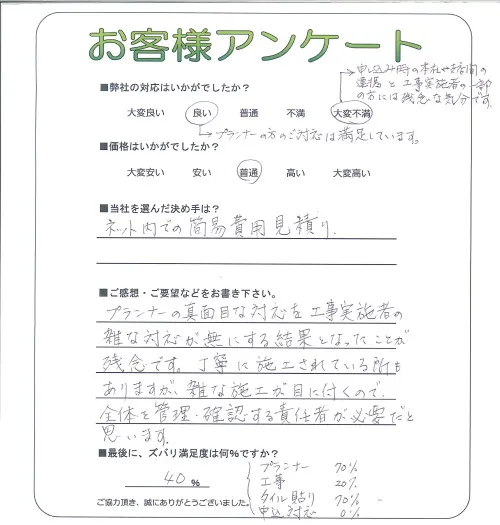 お客様アンケート
■弊社の対応はいかがでしたか？
申し込み時の本社や支店間の
連携と工事実施者の一部
の方には残念な気分です。
大変良い 良い 普通 不満 大変不満
プランナーの方のご対応は満足しています。
■価格はいかがでしたか？
大変安い 安い 普通 高い 大変高い
■当社を選んだ決め手は？
ネット内での簡易費用見積り.
■ご感想・ご要望などをお書き下さい。
プランナーの真面目な対応を工事実施者の
雑な対応が無にする結果となったことが
残念です。丁寧に施工されている所も
ありますが、雑な施工が目に付くので、
全体を管理・確認する責任者が必要だと
思います。
■最後に、ズバリ満足度は何%ですか？
40 %
プランナー 70%
工事 20%
タイル貼り 70%
申込対応 0%
ご協力頂き、誠にありがとうございました。